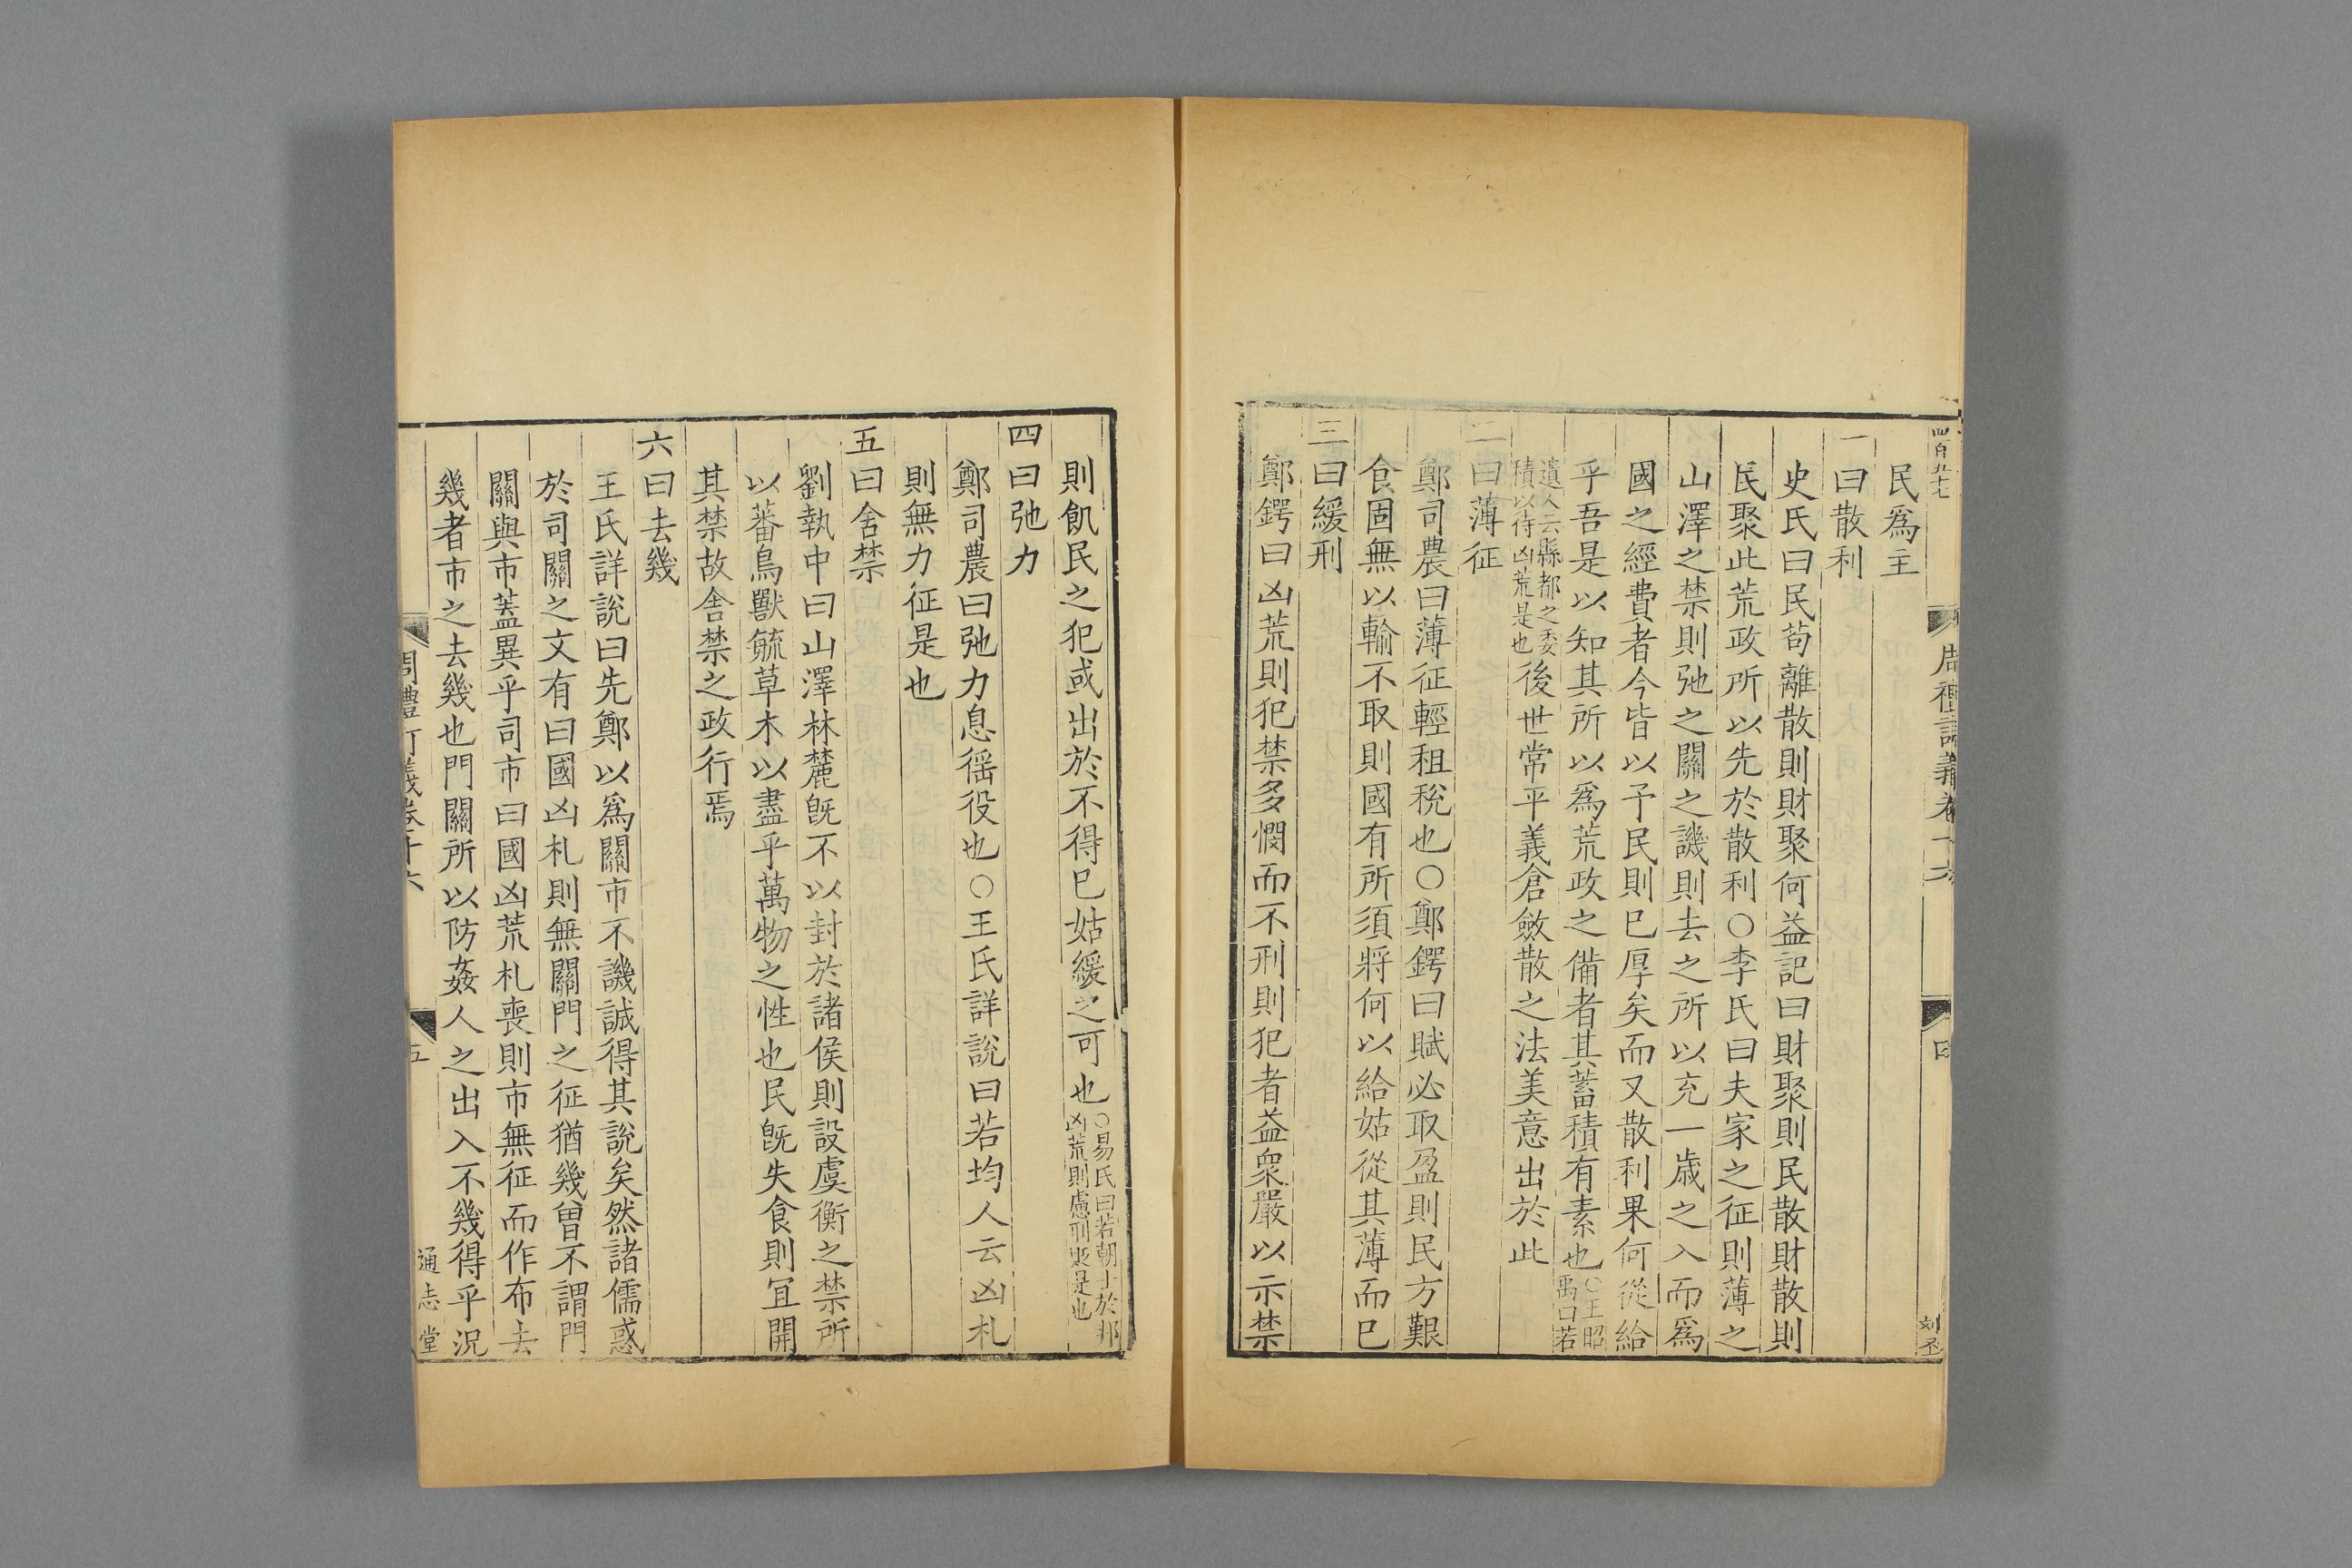 四百九十七
周禮訂義卷十六
四
刘丕
民爲主
一曰散利
史氏曰民苟離散則財聚何益記曰財聚則民散財散則
民聚此荒政所以先於散利○李氏曰夫家之征則薄之
山澤之禁則弛之關之譏則去之所以充一歲之入而爲
國之經費者今皆以予民則已厚矣而又散利果何從給
乎吾是以知其所以爲荒政之備者其蓄積有素也○王昭禹曰若
遺人云縣都之委積以待凶荒是也後世常平義倉斂散之法美意出於此
二曰薄征
鄭司農曰薄征輕租稅也○鄭鍔曰賦必取盈則民方艱
食固無以輸不取則國有所須將何以給姑從其薄而已
三曰緩刑
鄭鍔曰凶荒則犯禁多憫而不刑則犯者益衆嚴以示禁
則飢民之犯或出於不得已姑緩之可也○易氏曰若朝士於邦凶荒則慮刑貶是也
四曰弛力
鄭司農曰弛力息徭役也○王氏詳說曰若均人云凶札
則無力征是也
五曰舍禁
劉執中曰山澤林麓旣不以封於諸侯則設虞衡之禁所
以蕃鳥獸毓草木以盡乎萬物之性也民旣失食則宜開
其禁故舍禁之政行焉
六曰去幾
王氏詳說曰先鄭以爲關市不譏誠得其說矣然諸儒惑
於司關之文有曰國凶札則無關門之征猶幾曾不謂門
關與市蓋異乎司市曰國凶荒札喪則市無征而作布去
幾者市之去幾也門關所以防姦人之出入不幾得乎況
周禮訂義卷十六
五
通志堂